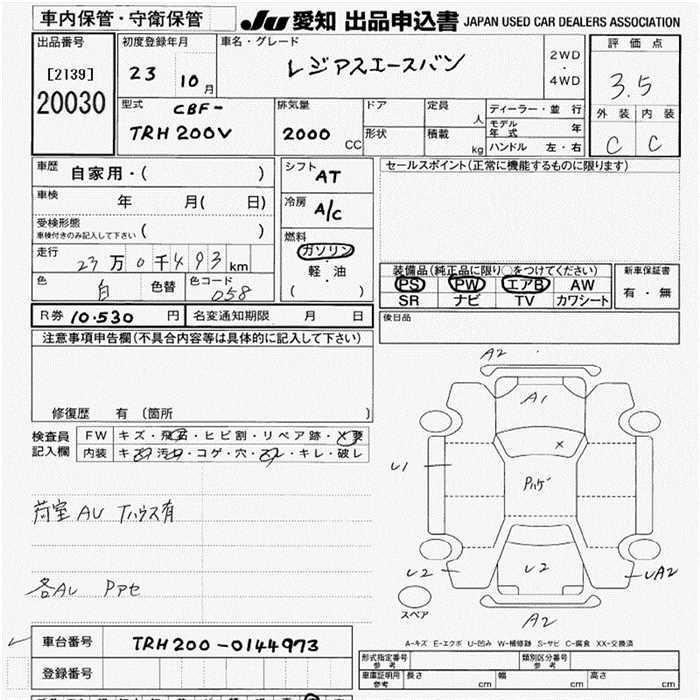 車内保管・守衛保管
JU 愛知 出品申込書 JAPAN USED CAR DEALERS ASSOCIATION
出品番号
[2139]
20030
初度登録年月
23 10月
車名・グレード
レジアスエースバン
2WD
・
4WD
評価点
3.5
外装 内装
C C
型式 CBF-
TRH200V
排気量
2000 CC
ドア
形状
定員 人
積載 kg
ディーラー・並行
モデル年式 年
ハンドル 左・右
車歴 自家用・( )
車検 年 月( 日)
受検形態
車検付きのみ記入して下さい ( )
走行 23万0千493km
色 白 色替 色コード 058
シフト AT
冷房 A/C
燃料
ガソリン
・
軽油
・
( )
セールスポイント(正常に機能するものに限ります)
装備品(純正品に限り○をつけてください)
PS PW エアB AW
SR ナビ TV カワシート
新車保証書
有・無
R券 10.530 円 名変通知期限 月 日
後日品
注意事項申告欄(不具合内容等は具体的に記入して下さい)
修復歴 有(箇所 )
検査員記入欄
FW キズ・飛石・ヒビ割・リペア跡・X要
内装 キズ・汚れ・コゲ・穴・スレ・キレ・破レ
荷室AU Tハウス有
各AU Pアセ
A2
A1
X
U1
Pハゲ
U2
U2
UA2
A2
スペア
A-キズ E-エクボ U-凹み W-補修跡 S-サビ C-腐食 XX-交換済
車台番号 TRH200-0144973
登録番号
形式指定番号 参考
類別区分番号 参考
車庫証明用 参考 長さ cm 幅 cm 高さ cm